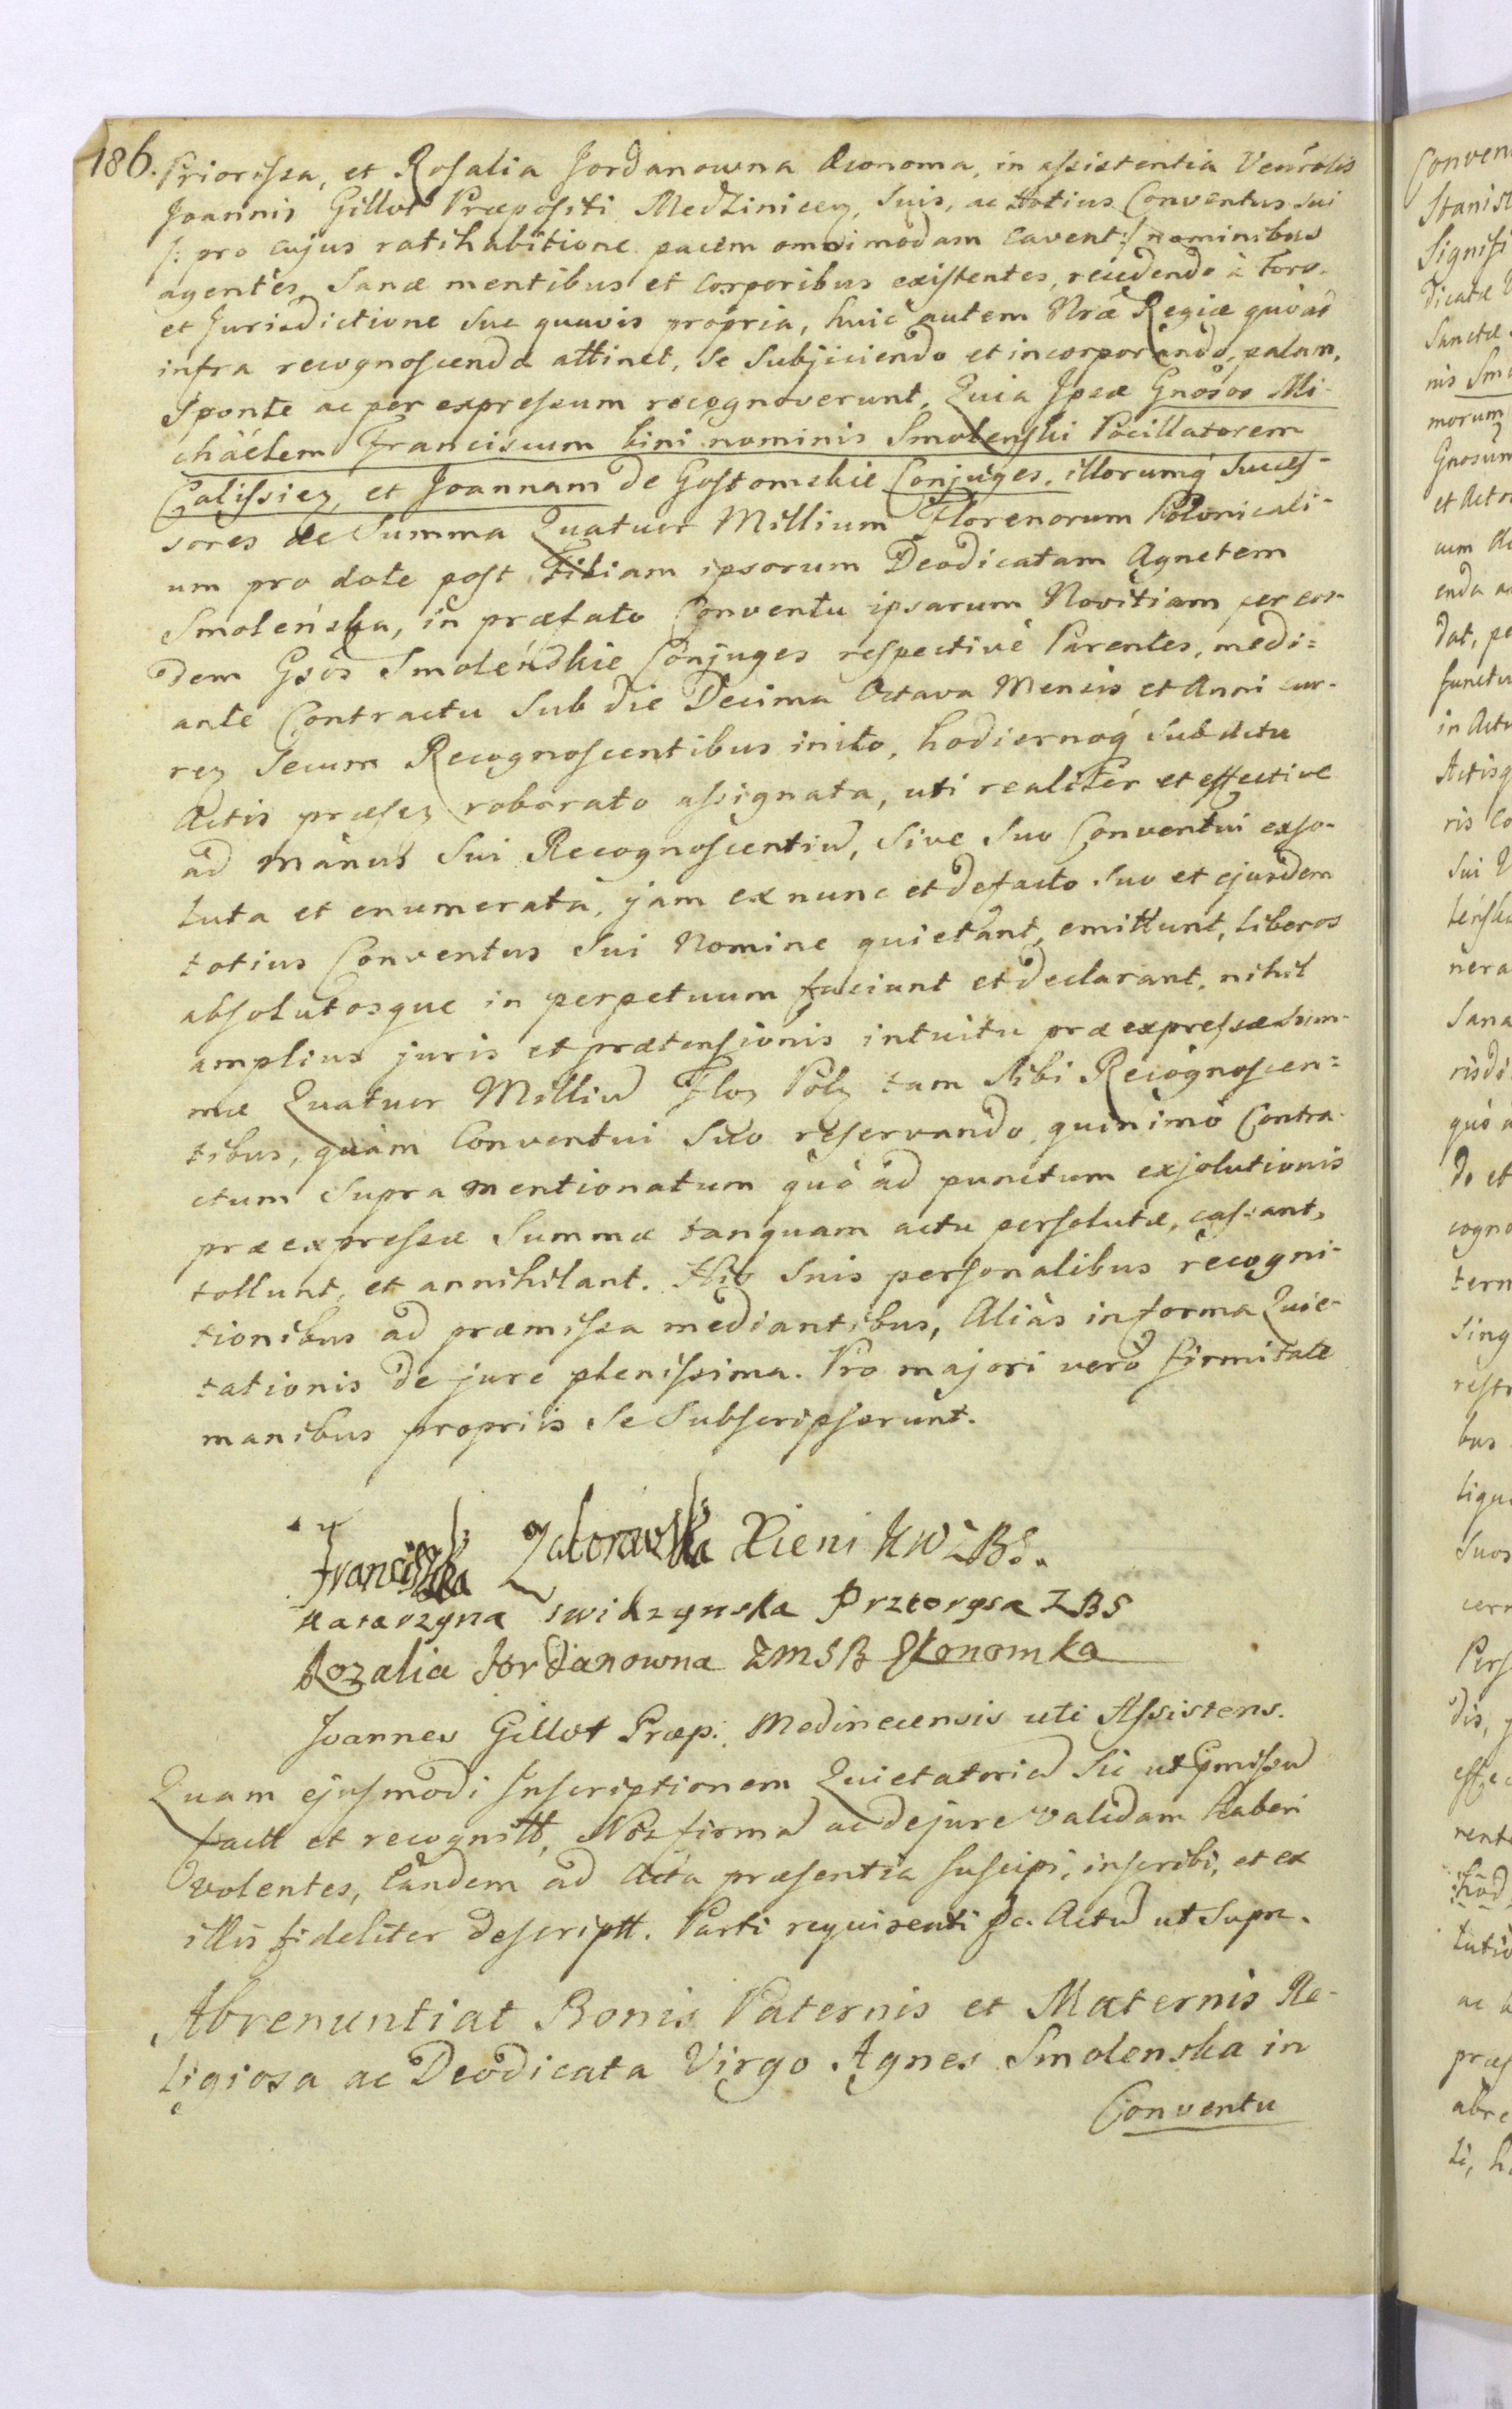 186. Priorissa, et Rosalia Jordanowna Œconoma, in assistentia Venrolis
Joannis Gillot Præpositi Medzinicen, suis, ac totius Conventus sui
/: pro cujus ratihabitione pacem omnimodam cavent :/ nominibus
agentes, Sanæ mentibus et Corporibus existentes, recedendo à Foro
et Jurisdictione sua quavis propria, huic autem Nræ Regiæ quò ad
infra recognoscenda attinet, se Subjiciendo et incorporando, palam,
Sponte ac per expressum recognoverunt, Quia Ipsæ Gnosos Mi-
chaëlem Franciscum bini nominis Smolenski Pocillatorem
Calissien, et Joannam de Gostomskie Conjuges, illorumq́ Succes-
sores de Summa Quatuor Millium Florenorum Polonicali-
um pro dote post Filiam ipsorum Deodicatam Agnetem
Smoleńska, in præfato Conventu ipsarum Novitiam per eos-
dem Gsos Smoleńskie Conjuges respectivè Parentes, medi-
ante Contractu Sub die Decima Octava Mensis et Anni cur-
ren Secum Recognoscentibus inito, hodiernoq́ Sub Actu
Actis præsen roborato assignata, uti realiter et effective
ad manus Sui Recognoscentiu, Sive Suo Conventui exso-
luta et enumerata, jam ex nunc et defacto suo et ejusdem
totius Conventus Sui Nomine quietant, emittunt, liberos
absolutosque in perpetuum faciunt et declarant, nihil
amplius juris et prætensionis intuitu præexpressæ Sum-
mæ Quatuor Milliu Flor Pol tam Sibi Recognoscen-
tibus, quàm Conventui Suo reservando, quinimò Contra-
ctum Supra mentionatum quò ad punctum exsolutionis
præexpressæ Summæ tanquam actu persolutæ, cassant,
tollunt, et annihilant. His Suis personalibus recogni-
tionibus ad præmissa mediantibus, Aliàs in forma Quie-
tationis de jure plenissima. Pro majori verò firmitate
manibus propriis Se Subscripserunt.
Franciszka Zaborowska Xieni KWZBS.
Katarzyna Swidzynska Przeorysa ZBS
Rozalia Jordanowna ZMSB Ekonomka
Joannes Gillot Præp: Medinecensis uti Assistens.
Quam ejusmodi Inscriptionem Quietatoriā Sic ut pmissū
factt et recognitt, Nos firmā ac de jure validam haberi
volentes, Eandem ad Acta præsentia suscipi, inscribi, et ex
illis fideliter descriptt. Parti requirenti &c. Actū ut Supra.
Abrenuntiat Bonis Paternis et Maternis Re-
ligiosa ac Deodicata Virgo Agnes Smolenska in
Conventu